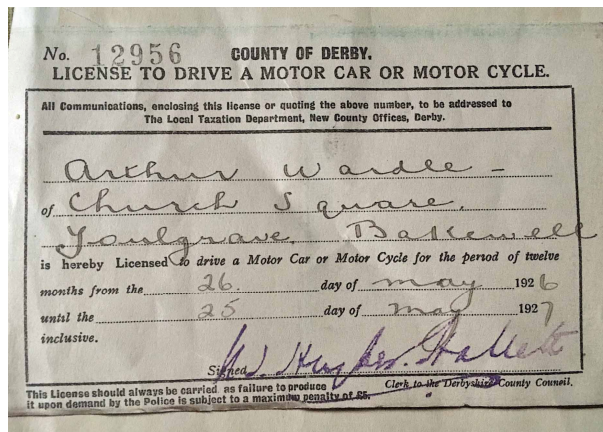 No. 12956 COUNTY OF DERBY.
LICENSE TO DRIVE A MOTOR CAR OR MOTOR CYCLE.
All Communications, enclosing this license or quoting the above number, to be addressed to
The Local Taxation Department, New County Offices, Derby.
Arthur Wardle –
of Church Square,
Youlgrave, Bakewell
is hereby Licensed to drive a Motor Car or Motor Cycle for the period of twelve
months from the 26 day of may 1926
until the 25 day of may 1927
inclusive.
Signed Hughes Hallett
Clerk to the Derbyshire County Council.
This License should always be carried as failure to produce
it upon demand by the Police is subject to a maximum penalty of £5.